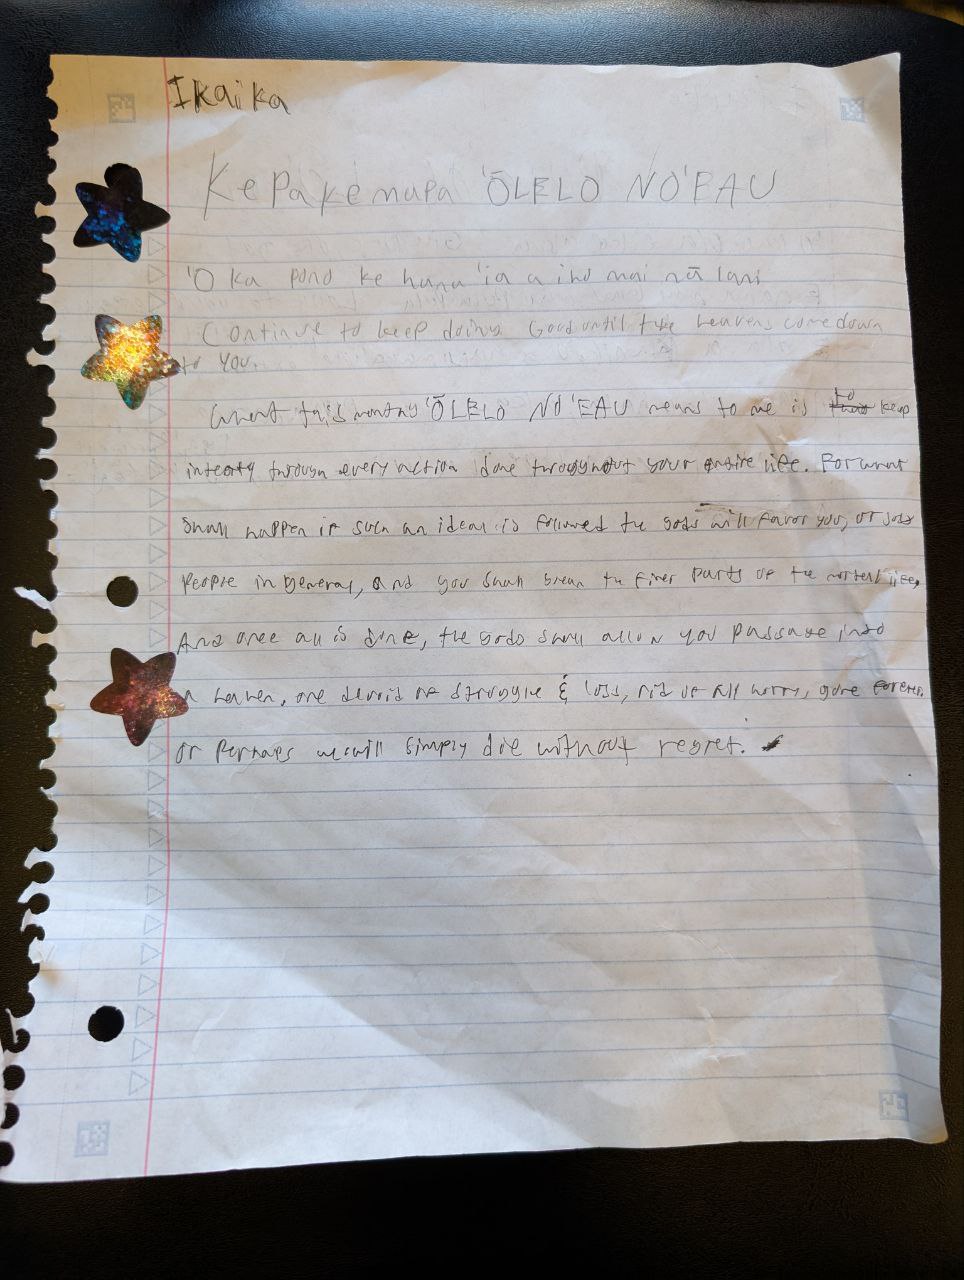 Ikaika
Kepakemapa 'ŌLELO NO'EAU
'O ka pono ke hana 'ia a iho mai nā lani
Continue to keep doing Good until the heavens come down
to you.
What this months 'ŌLELO NO'EAU means to me is to keep
through every action done throughout your entire life. For what
Shall happen if such an ideal is followed the gods will favor you, or
People in general, and you shall the finer parts of the mortal life,
And once all is done, the gods shall allow you passage into
a heaven, one devoid of struggle & loss, rid of all worry, gone forever.
or Perhaps we will simply die without regret.